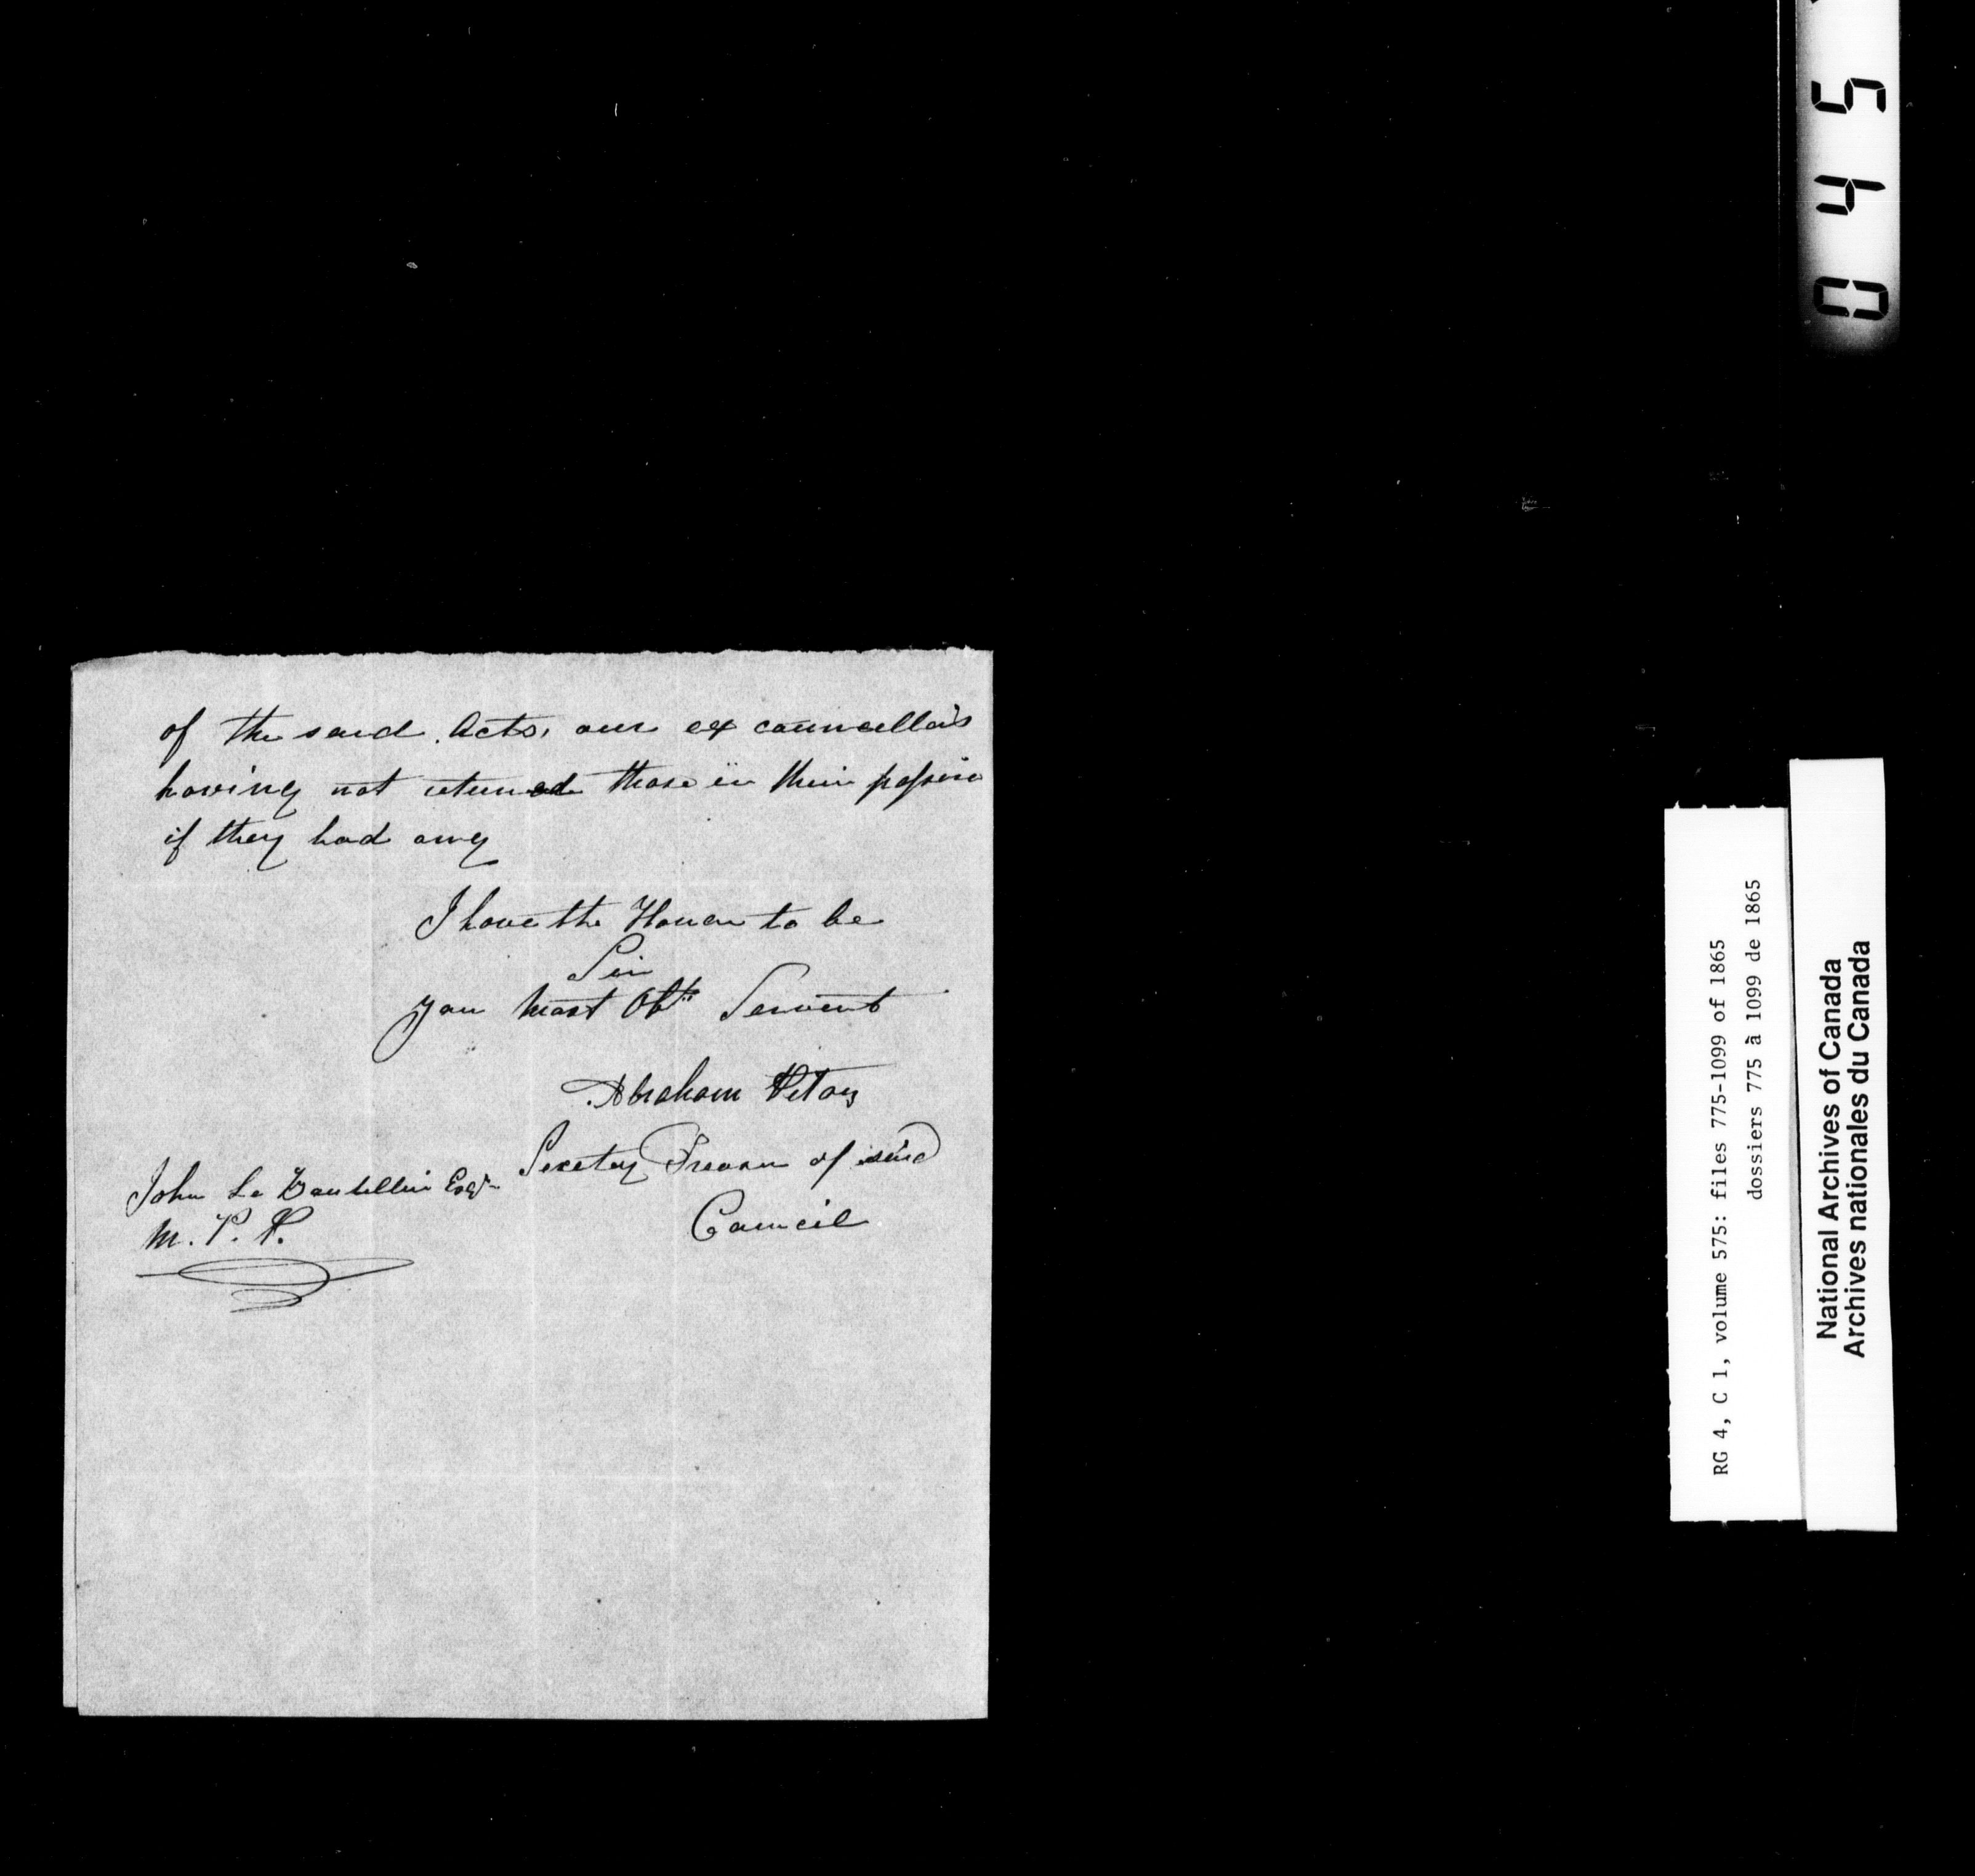 of the said Acts, our ex councellors
having not returned those in their
if they had any
I have the Honor to be
Sir
your Most Obt Servent
Abraham
Secretary Treasr of said
Council
John Le Boutellier Esqr
M. P. P.
0 4 5
RG 4, C 1, volume 575: files 775-1099 of 1865
dossiers 775 à 1099 de 1865
National Archives of Canada
Archives nationales du Canada